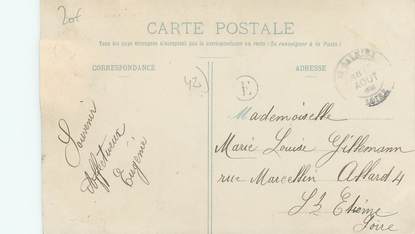 20f
CARTE POSTALE
Tous les pays étrangers n'acceptent pas la correspondance au recto (Se renseigner à la Poste)
CORRESPONDANCE
ADRESSE
42
E
AOUT
LOIRE
Souvenir
Affectueux
Eugénie
Mademoiselle
Marie Louise Gillemann
rue Marcellin Allard 4
St Etienne
Loire